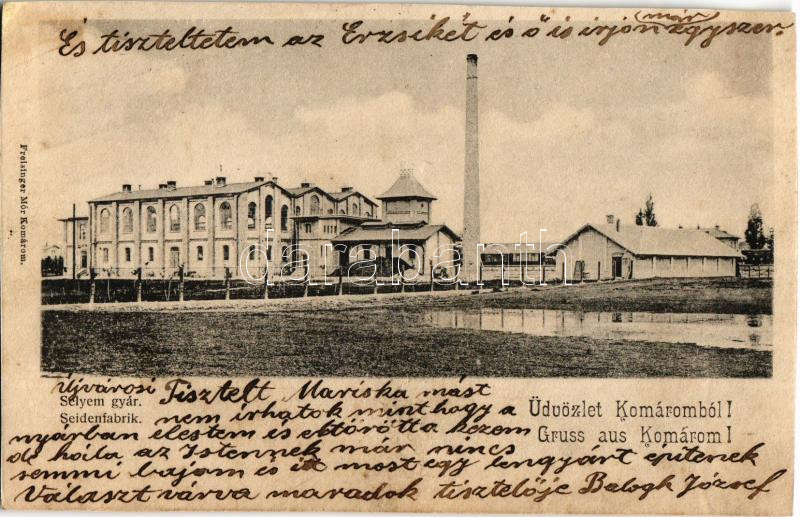 És tiszteltetem az Erzsikét és ő is irjon már egyszer
Freisinger Mór Komárom.
darabanth
Újvárosi
Selyem gyár.
Seidenfabrik.
Üdvözlet Komáromból!
Gruss aus Komárom!
Tisztelt Mariska mást
nem irhatok mint hogy a
nyárban elestem és eltörött a kezem
de hála az Istennek már nincs
semmi bajom és itt most egy lengyárt építenek
Választ várva maradok tisztelője Balogh József